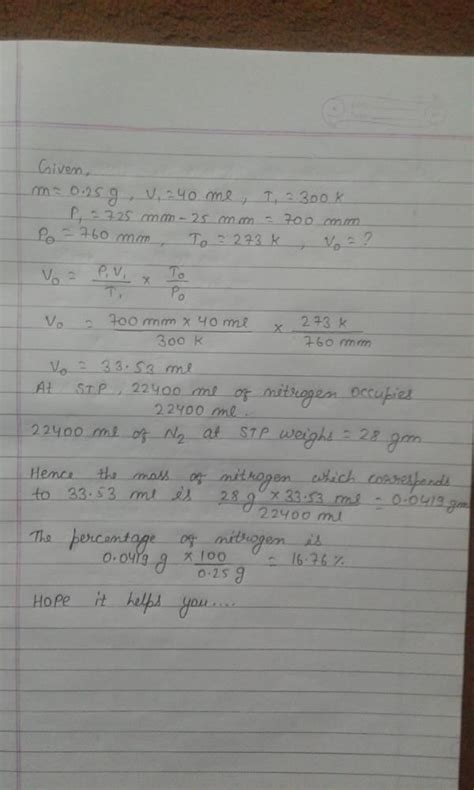 Given,
m = 0.25 g, V₁ = 40 ml, T₁ = 300 k
P₁ = 725 mm - 25 mm = 700 mm
P₀ = 760 mm, T₀ = 273 k, V₀ = ?
V₀ = P₁V₁/T₁ × T₀/P₀
V₀ = 700 mm × 40 ml/300 k × 273 k/760 mm
V₀ = 33.53 ml
At STP, 22400 ml of nitrogen occupies
22400 ml.
22400 ml of N₂ at STP weighs = 28 gm
Hence the mass of nitrogen which corresponds
to 33.53 ml is 28 g × 33.53 ml/22400 ml = 0.0419 gm
The percentage of nitrogen is
0.0419 g × 100/0.25 g = 16.76 %
Hope it helps you....